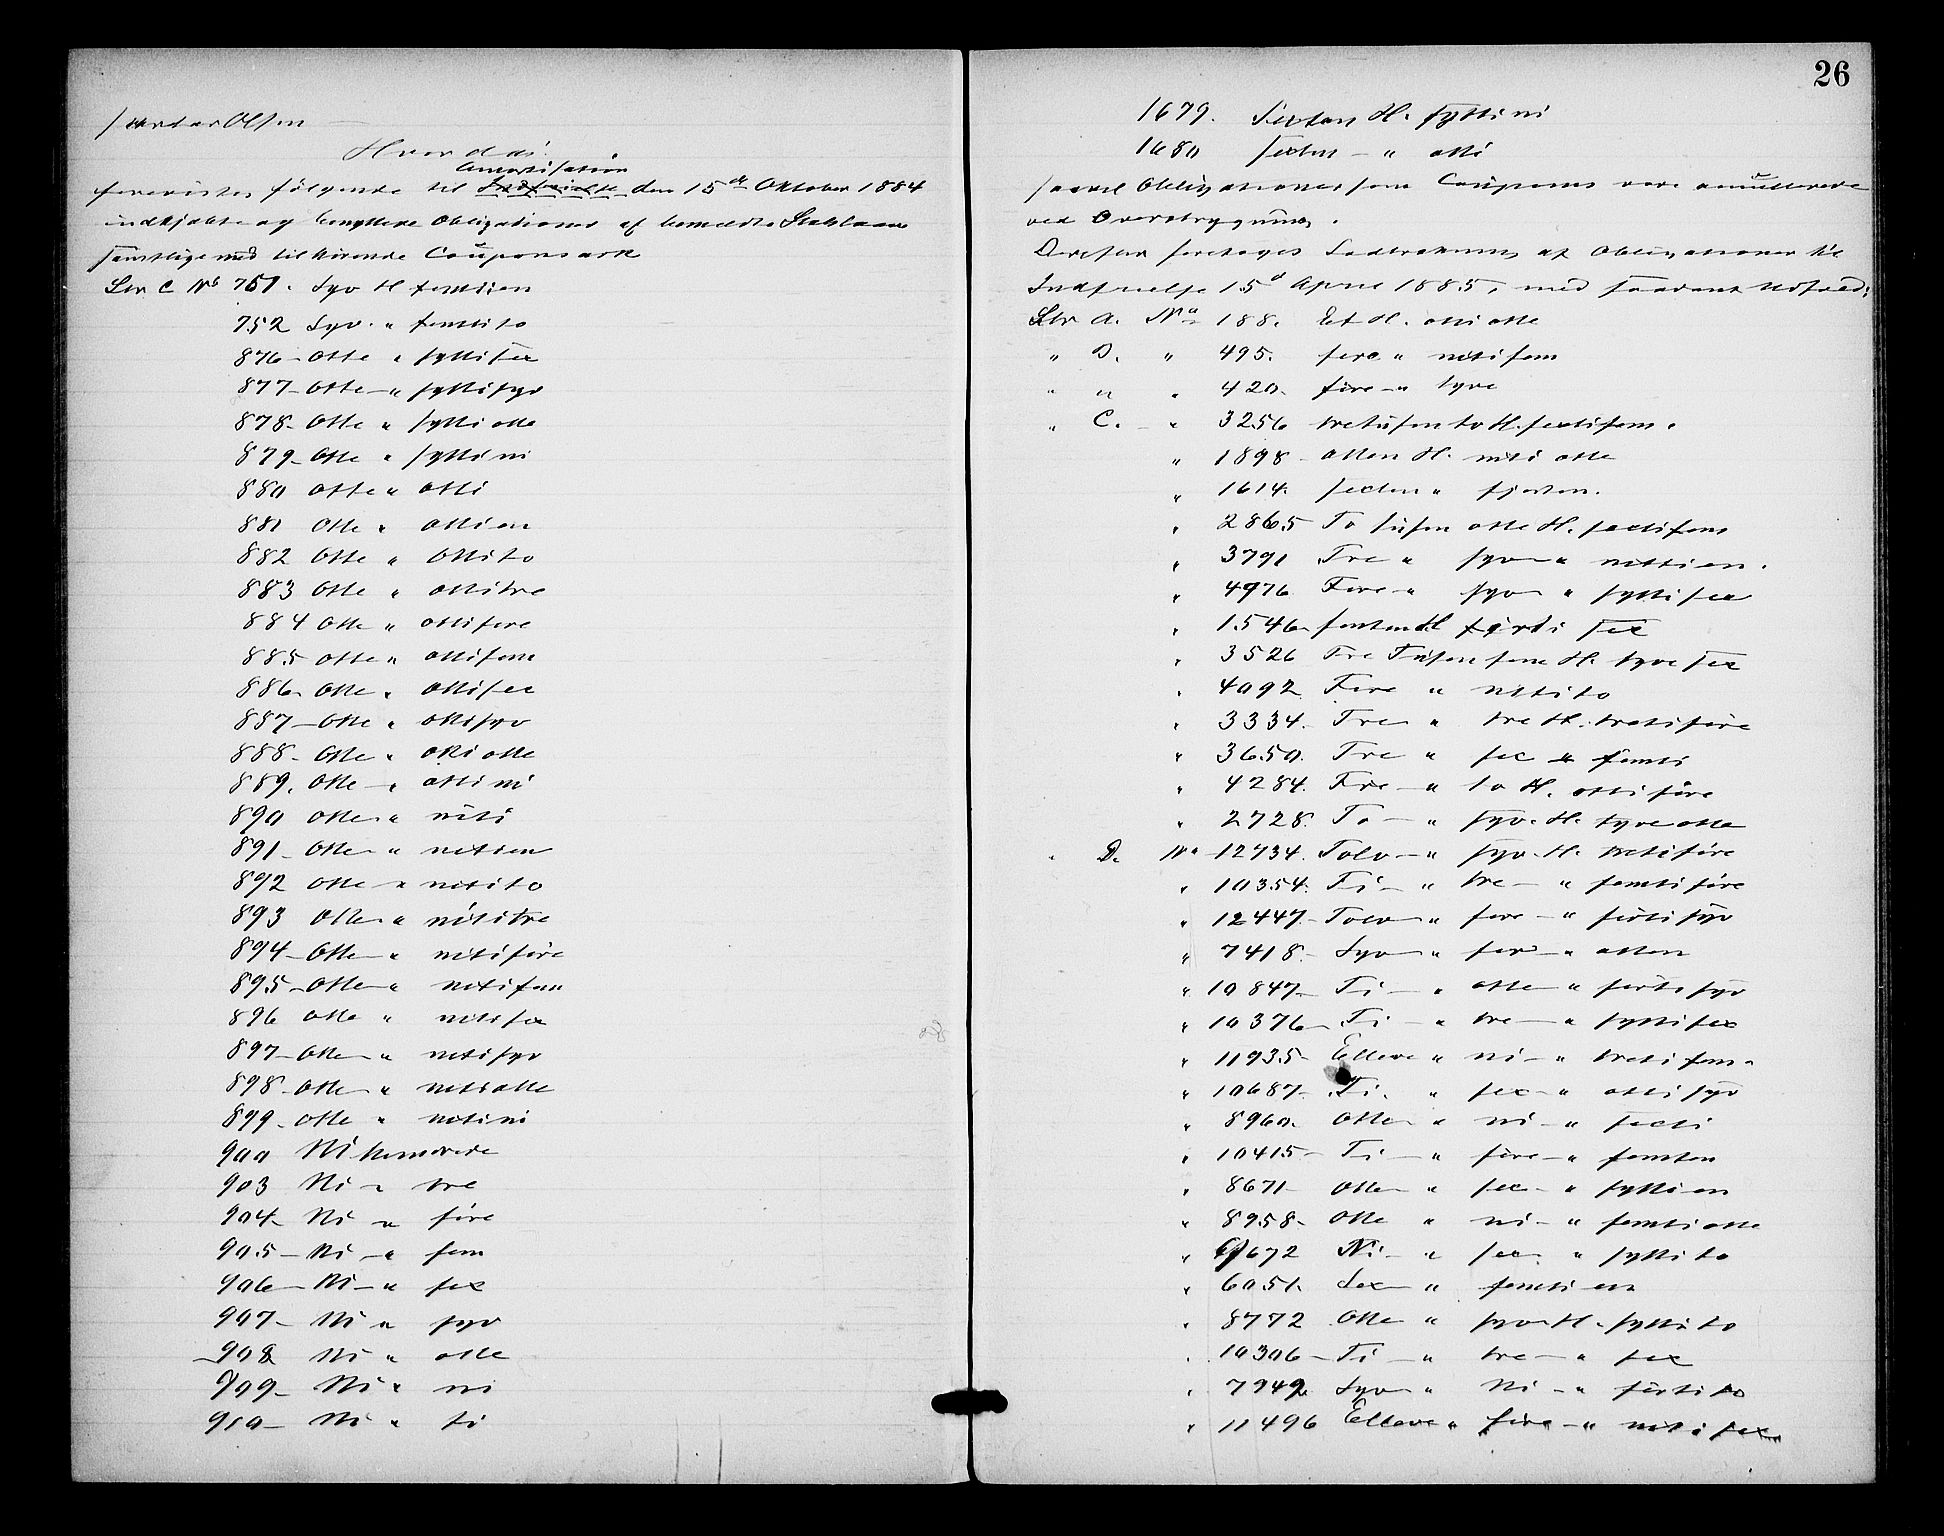 Hvorda
Amortisation
forevistes følgende til Indfrielse den 15de Oktober 1884
indkjøbte og benyttede Obligationer af bemeldte Statslaan
samtlige med tilhørende Couponsark
Ltr C No 751. Syv H femtien
752 Syv. " femtito
876 - Otte " syttisex
877 - Otte - " syttisyv
878 - Otte " syttiotte
879 - Otte " syttini
880 Otte " otti
881 Otte " ottien
882 Otte " Ottito
883 Otte " ottitre
884 Otte " ottifire
885 Otte " ottifem
886 - Otte " ottisex
887 - Otte " ottisyv
888 - Otte " ottiotte
889. Otte - " ottini
890 Otte " niti
891 - Otte - " nitien
892 Otte - " nitito
893 Otte " nititre
894 - Otte - " nitifire
895 - Otte - " nitifem
896 Otte " nitisex
897 - Otte - " nitisyv
898 - Otte - " nitiotte
899 - Otte " nitini
900 Ni hundrede
903 Ni - " tre
904 - Ni " fire
905 - Ni - " fem
906 - Ni - " sex
907 - Ni " syv
908 Ni " otte
909 - Ni " ni
910 - Ni " ti
26
1679. Sexten H. syttini
1680 sexten - " otti
saavel Obligationer som Coupons vare annullerede
ved Overstrygning.
Derefter foretoges Udtrækning af Obligationer til
Indfrielse 15d April 1885, med saadant Udfald:
Ltr A. No 188. Et H. ottiotte
" B. " 495. fire " nitifem
" " " 420. fire - " tyve
" C. - " 3256 tretusen to H. femtisex.
" 1898 - atten H. nitiotte
" 1614. sexten " fjorten.
" 2865 To tusen otte H. sextifem
" 3791 Tre " syv " nittien.
" 4776 Fire - " syv " syttisex
" 1546 - femten H førtisex
" 3526 Tre Tusen fem H. tyvesex
" 4092 Fire " nittito
" 3334. Tre " tre H. trettifire
" 3650. Tre " sex " femti
" 4284. Fire - " to H. ottifire
" 2728. To - " syv H. tyveotte
" D. No 12734. Tolv - " syv H. trettifire
" 10354. Ti - " tre - " femtifire
" 12447 - Tolv " fire - " førtisyv
" 7418 - Syv " fire - " atten
" 10847 - Ti - " otte - " førtisyv
" 10376 - Ti - " tre - " syttisex
" 11935 - Elleve " ni - " trettifem
" 10687 - Ti. " sex - " ottisyv
" 8960. Otte " ni - " sexti
" 10415 - Ti - " fire - " femten
" 8671 - Otte " sex - " syttien
" 8958 - Otte " ni - " femtiotte
" 9672 Ni - " sex " syttito
" 6051. Sex " femtien
" 8772 Otte " syv H. syttito
" 10306 - Ti - " tre - " sex
" 7942 Syv " Ni - " førtito
" 11496 Elleve " fire - " nitisex